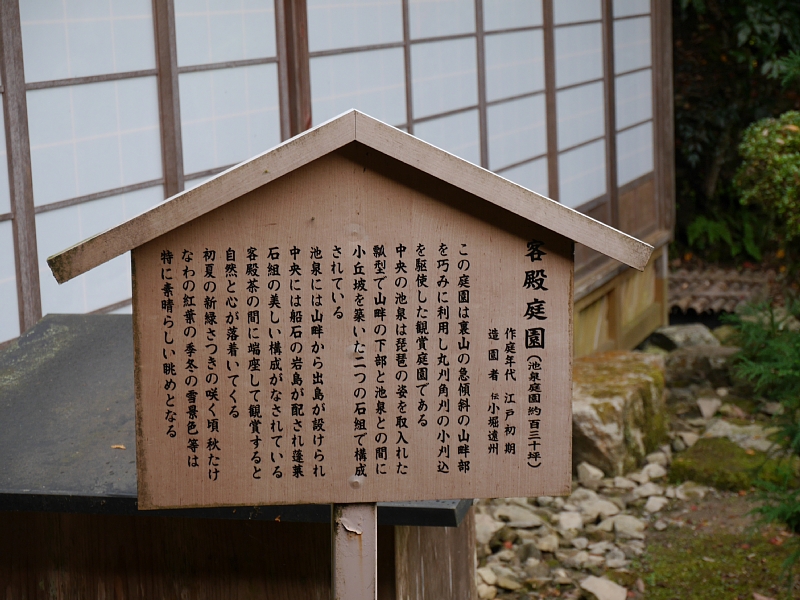 客殿庭園(池泉庭園約百三十坪)
作庭年代 江戸初期
造園者 伝小堀遠州
この庭園は裏山の急傾斜の山畔部
を巧みに利用し丸刈角刈の小刈込
を駆使した観賞庭園である
中央の池泉は琵琶の姿を取入れた
瓢型で山畔の下部と池泉との間に
小丘坡を築いた二つの石組で構成
されている
池泉には山畔から出島が設けられ
中央には船石の岩島が配され蓬莱
石組の美しい構成がなされている
客殿茶の間に端座して観賞すると
自然と心が落着いてくる
初夏の新緑さつきの咲く頃秋たけ
なわの紅葉の季冬の雪景色等は
特に素晴らしい眺めとなる